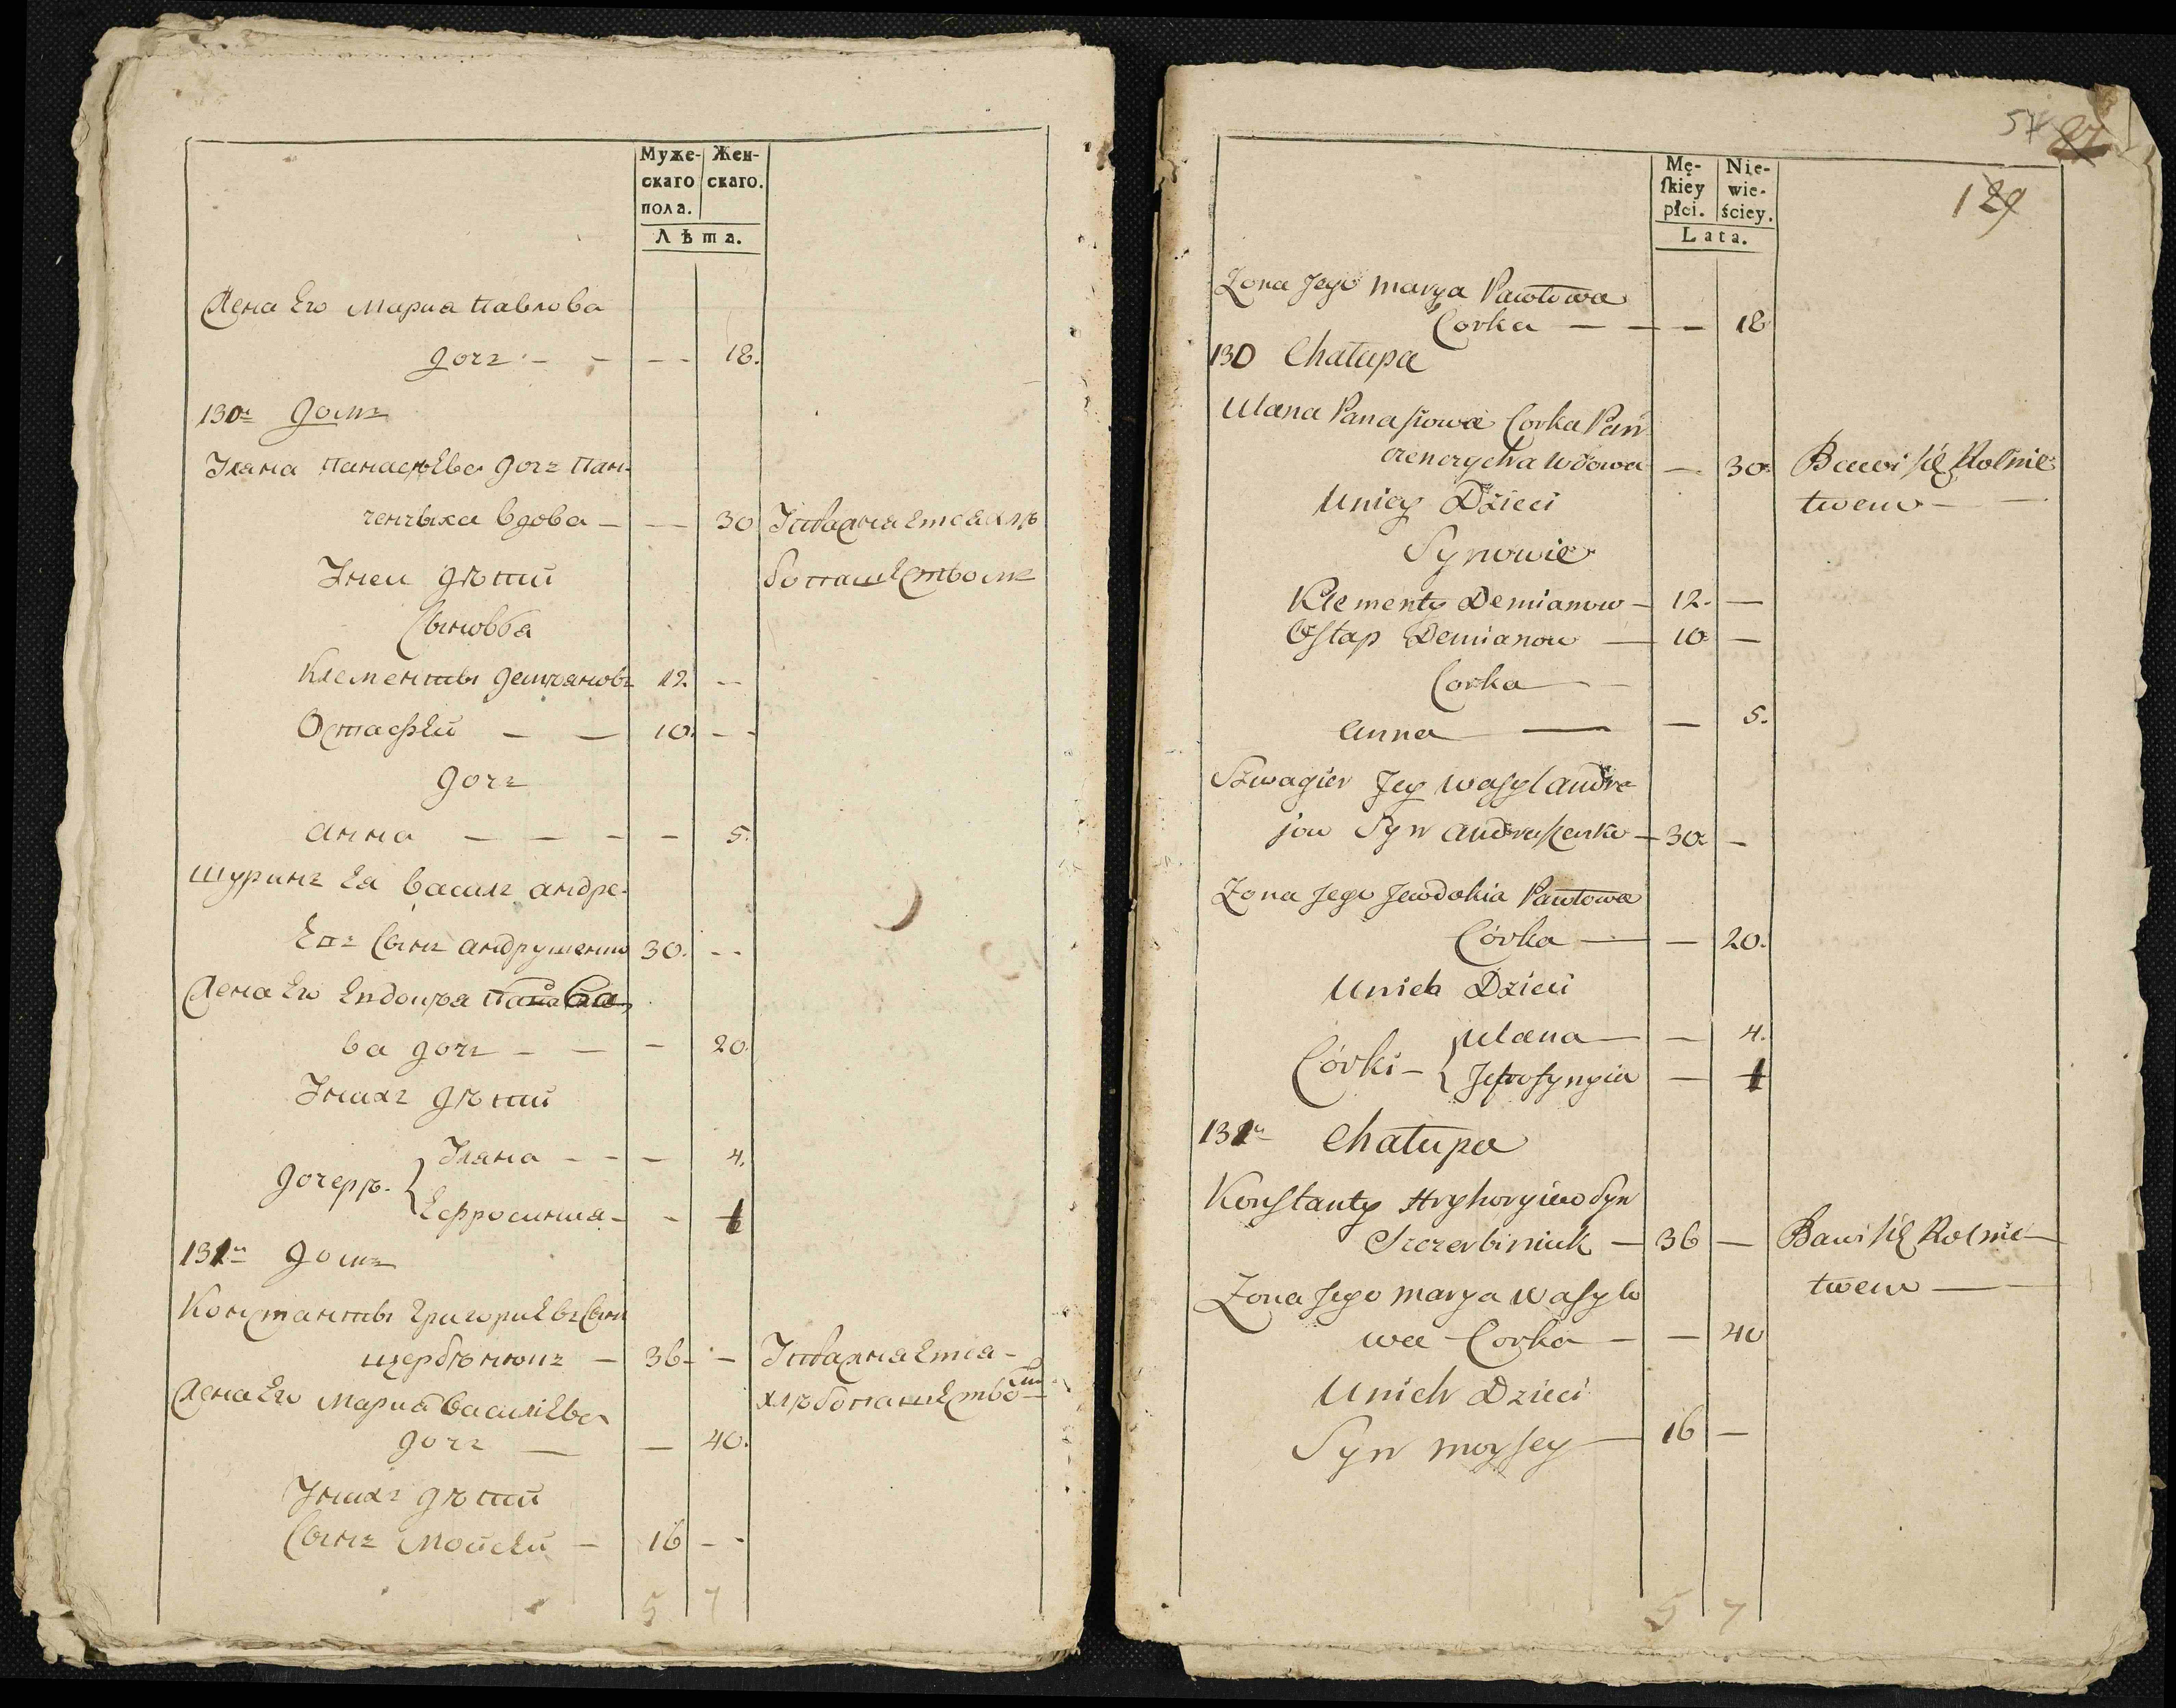 Муже- Жен-
скаго скаго.
пола.
Лѣта.
Жена Его Мариа Павлова
дочъ - - - - 18.
130й домъ
Уляна Панасѣева дочъ Пан-
ченчыха вдова - - 30 Упражняется хлѣ
Унеи дѣтий бопашествомъ
Сыновѣя
Клементы демѣяновъ 12. --
Остафей - - 10. --
дочъ
анна - - - - 5.
шуринъ Ея василъ андре-
Евъ Сынъ андрушенко 30. --
Жена Его Евдокѣа Павло
ва дочъ - - - 20.
Унихъ дѣтий
дочерѣ. { Уляна - - - 4.
Ефросиния - - 1
131й домъ
Константы Григориевъ Сынъ
щербѣнюкъ - 36 - - Упражняется -
Жена Его Мариа василіева хлѣбопашествомъ
дочъ - - 40.
Унихъ дѣтий
Сынъ Мойсей - 16 - -
5 7
57 27
129
Mę- Nie-
ſkiey wie-
płci. ściey.
Lata.
Zona Jego Marya Pawłowa
Corka - - - 18
130 Chałupa
Ulana Panaſiowa Corka Pań
czenczycha Wdowa - 30. Bawi ſię Rolnic
Uniey Dzieci twem -
Synowie
Klementy Demianow - 12. -
Ostap Demianow - 10 -
Corka
Anna - - 5.
Szwagier Jey Waſyl Andre
jow Syn Andruſzenko - 30. -
Zona Jego Jewdokia Pawłowa
Córka - - 20.
Unich Dzieci
Córki - { Ulana - - 4.
Jefroſynyia - 1
131a Chałupa
Konſtanty Hryhoryiew Syn
Szczerbiniuk - 36 - Bawi ſię Rolnic -
Zona Jego Marya Waſylo twem -
wa Corka - - 40
Unich Dzieci
Syn Moyſey - 16 -
5 7